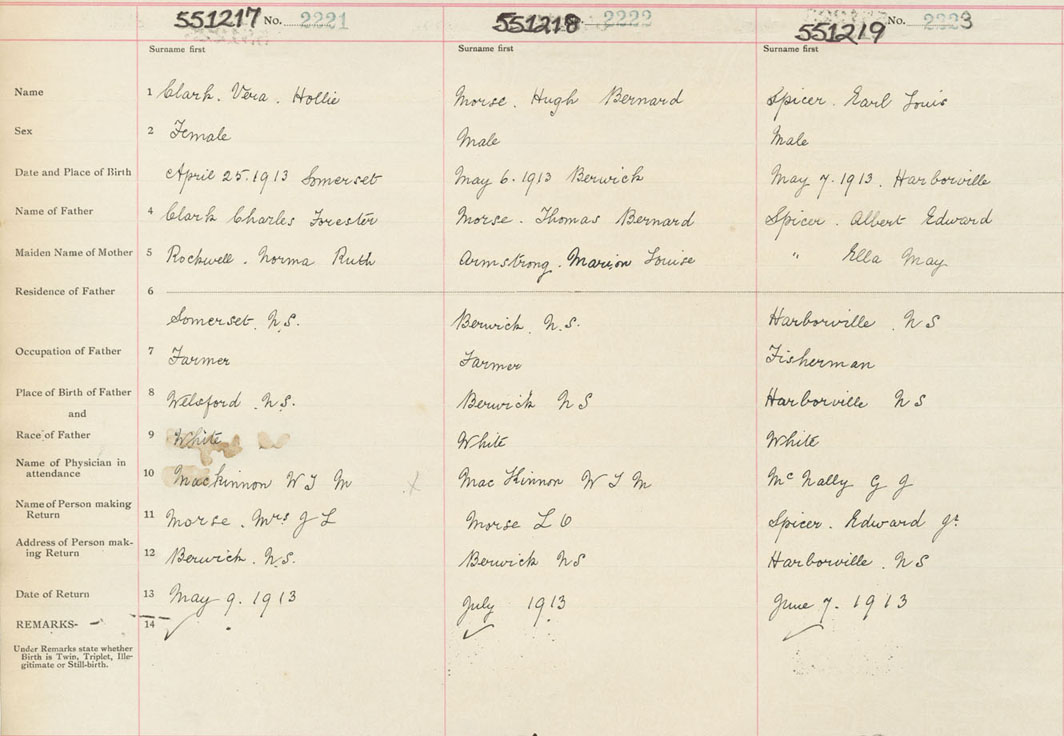 551217 No. 2221 551218 2222 551219 No. 2223
Surname first Surname first Surname first
Name 1 Clark. Vera. Hollie Morse. Hugh Bernard Spicer. Earl Louis
Sex 2 Female Male Male
Date and Place of Birth 3 April 25.1913 Somerset May 6.1913 Berwick May 7.1913. Harborville
Name of Father 4 Clark Charles Forester Morse. Thomas Bernard Spicer. Albert Edward
Maiden Name of Mother 5 Rockwell. Norma Ruth Armstrong. Marion Louise " Ella May
Residence of Father 6
Somerset. N.S. Berwick. N.S. Harborville. N S
Occupation of Father 7 Farmer Farmer Fisherman
Place of Birth of Father 8 Welsford. N.S. Berwick N S Harborville N S
and
Race of Father 9 White White White
Name of Physician in
attendance 10 Mackinnon W J M Mac Kinnon W J M Mc Nally G J
Name of Person making
Return 11 Morse. Mrs J L Morse L O Spicer. Edward Jr
Address of Person mak-
ing Return 12 Berwick. N.S. Berwick NS Harborville. NS
Date of Return 13 May 9. 1913 July 1913 June 7. 1913
REMARKS- 14
Under Remarks state whether
Birth is Twin, Triplet, Ille-
gitimate or Still-birth.